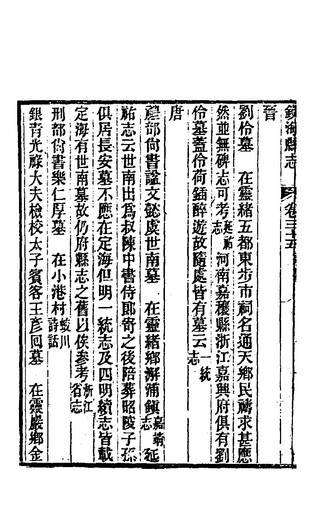 鎮海縣志 卷三十五
晉
劉伶墓 在靈緒五都東步市祠名通天鄉民禱求甚應
然並無碑志可考延祐志河南嘉穫縣浙江嘉興府俱有劉
伶墓蓋伶荷鍤醉遊故隨處皆有墓云一統志
唐
禮部尚書諡文懿虞世南墓 在靈緒鄉澥浦鎮嘉靖志延
祐志云世南出爲叔陳中書侍郎奇之後陪葬昭陵子孫
俱居長安墓不應在定海但明一統志及四明續志皆載
定海有世南墓故仍府縣志之舊以俟參考浙江省志
刑部尚書樂仁厚墓 在小港村蛟川詩話
銀青光祿大夫檢校太子賓客王彥囘墓 在靈巖鄉金